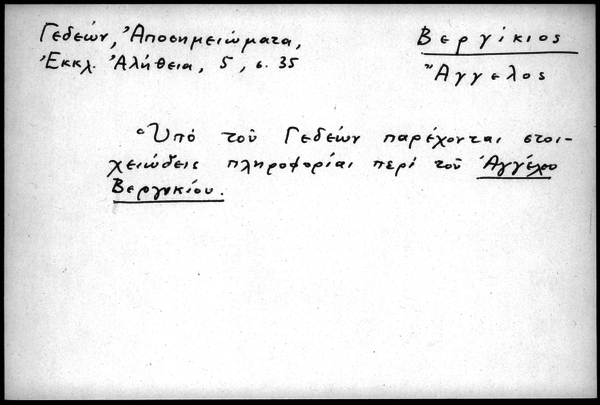 Γεδεών, Ἀποσημειώματα,
Ἐκκλ. Ἀλήθεια, 5, σ. 35
Βεργίκιος
Ἄγγελος
Ὑπό τοῦ Γεδεών παρέχονται στοι-
χειώδεις πληροφορίαι περί τοῦ Ἀγγέλο
Βεργικίου.